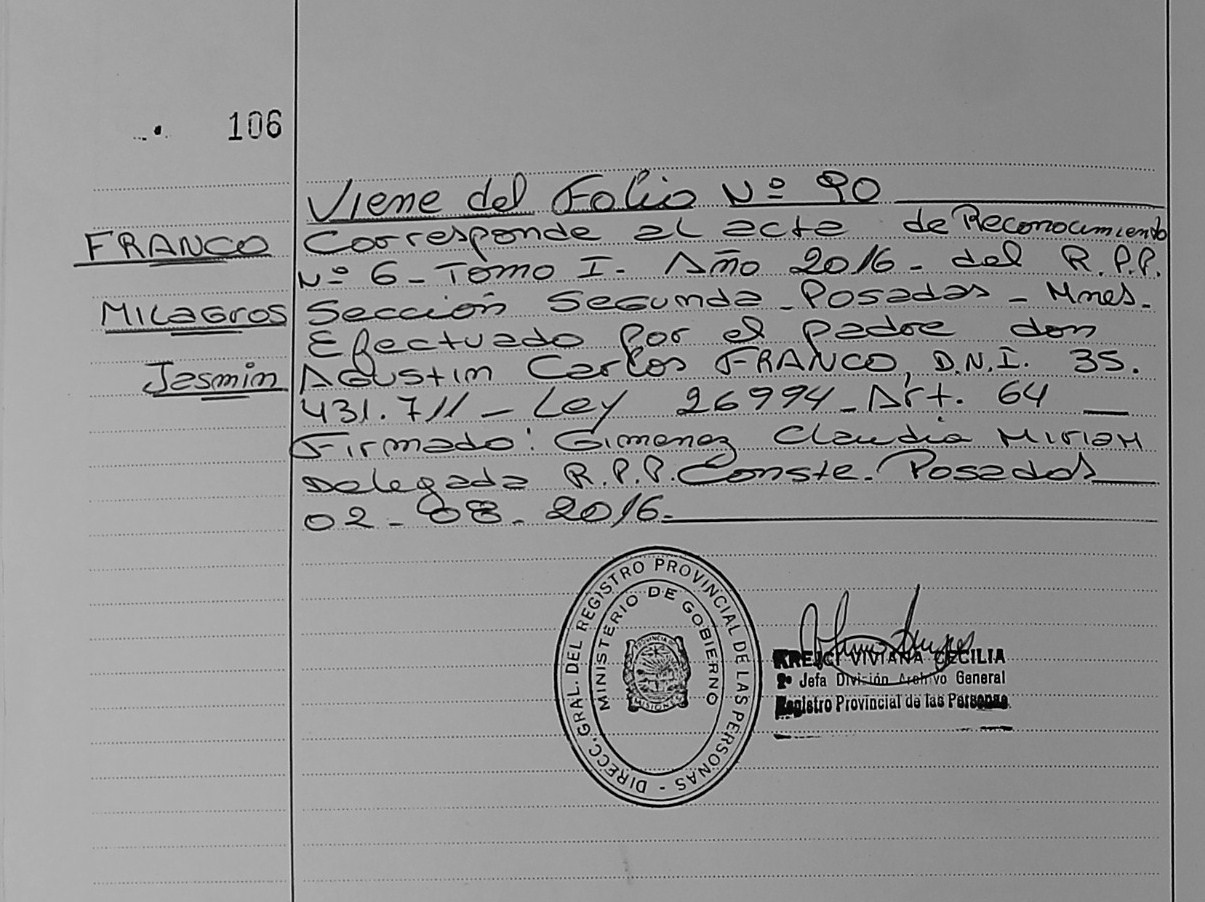 106
Viene del Folio Nº 90
FRANCO
Corresponde al acta de Reconocimiento
Nº 6 - Tomo I. Año 2016 - del R.P.P.
MILAGROS
Sección Segunda - Posadas - Mnes.
Efectuado por el padre don
Jasmin
Agustin Carlos FRANCO, D.N.I. 35.
431.711 - Ley 26994 - Art. 64
Firmado: Gimenez Claudia Miriam
Delegada R.P.P. Conste. Posadas
02 - 08 - 2016.
DIRECC. GRAL. DEL REGISTRO PROVINCIAL DE LAS PERSONAS -
MINISTERIO DE GOBIERNO
PROVINCIA DE
MISIONES
KREJCI VIVIANA CECILIA
Jefa División Archivo General
Registro Provincial de las Personas